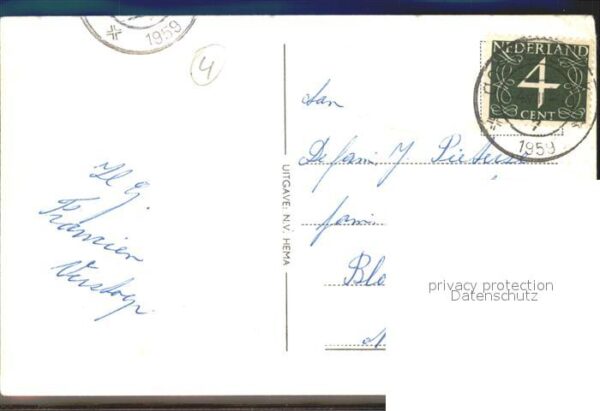 1959
4
NEDERLAND
4
CENT
1959
Aan
De fam. J. Pieterse
fam
Blo
UITGAVE: N.V. HEMA
H. G.
privacy protection
Datenschutz